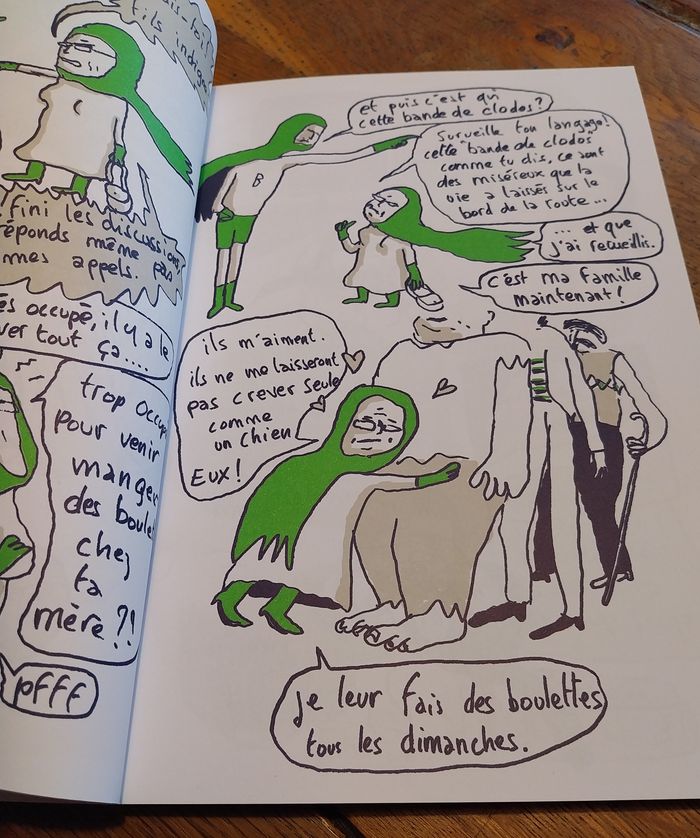 fils indigne
fini les discussions,
réponds même pas
mes appels.
occupé, il y a le
tout ça....
trop occupé
pour venir
manger
des boulet
chez
ta
mère ?!
pfff
et puis c'est qui
cette bande de clodos ?
B
Surveille ton langage !
cette bande de clodos
comme tu dis, ce sont
des miséreux que la
vie a laissés sur le
bord de la route...
... et que
j'ai recueillis.
c'est ma famille
maintenant !
ils m'aiment.
ils ne me laisseront
pas crever seule
comme
un chien
Eux !
je leur fais des boulettes
tous les dimanches.